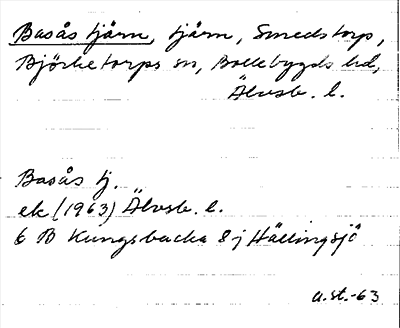 Basås tjärn, tjärn, Smedstorp,
Björketorps sn, Bollebygds hd,
Älvsb. l.
Basås tj.
ek (1963) Älvsb. l.
6 B Kungsbacka 8 j Hällingsjö
a.st.-63